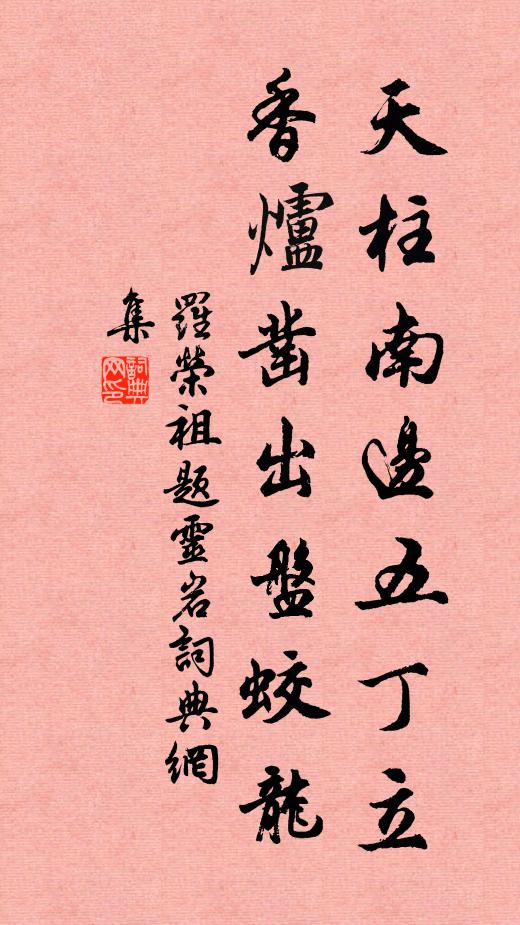 天柱南邊五丁立
香爐凿出盤蛟龍
羅榮祖題靈岩詞典網
集
詞典
网印